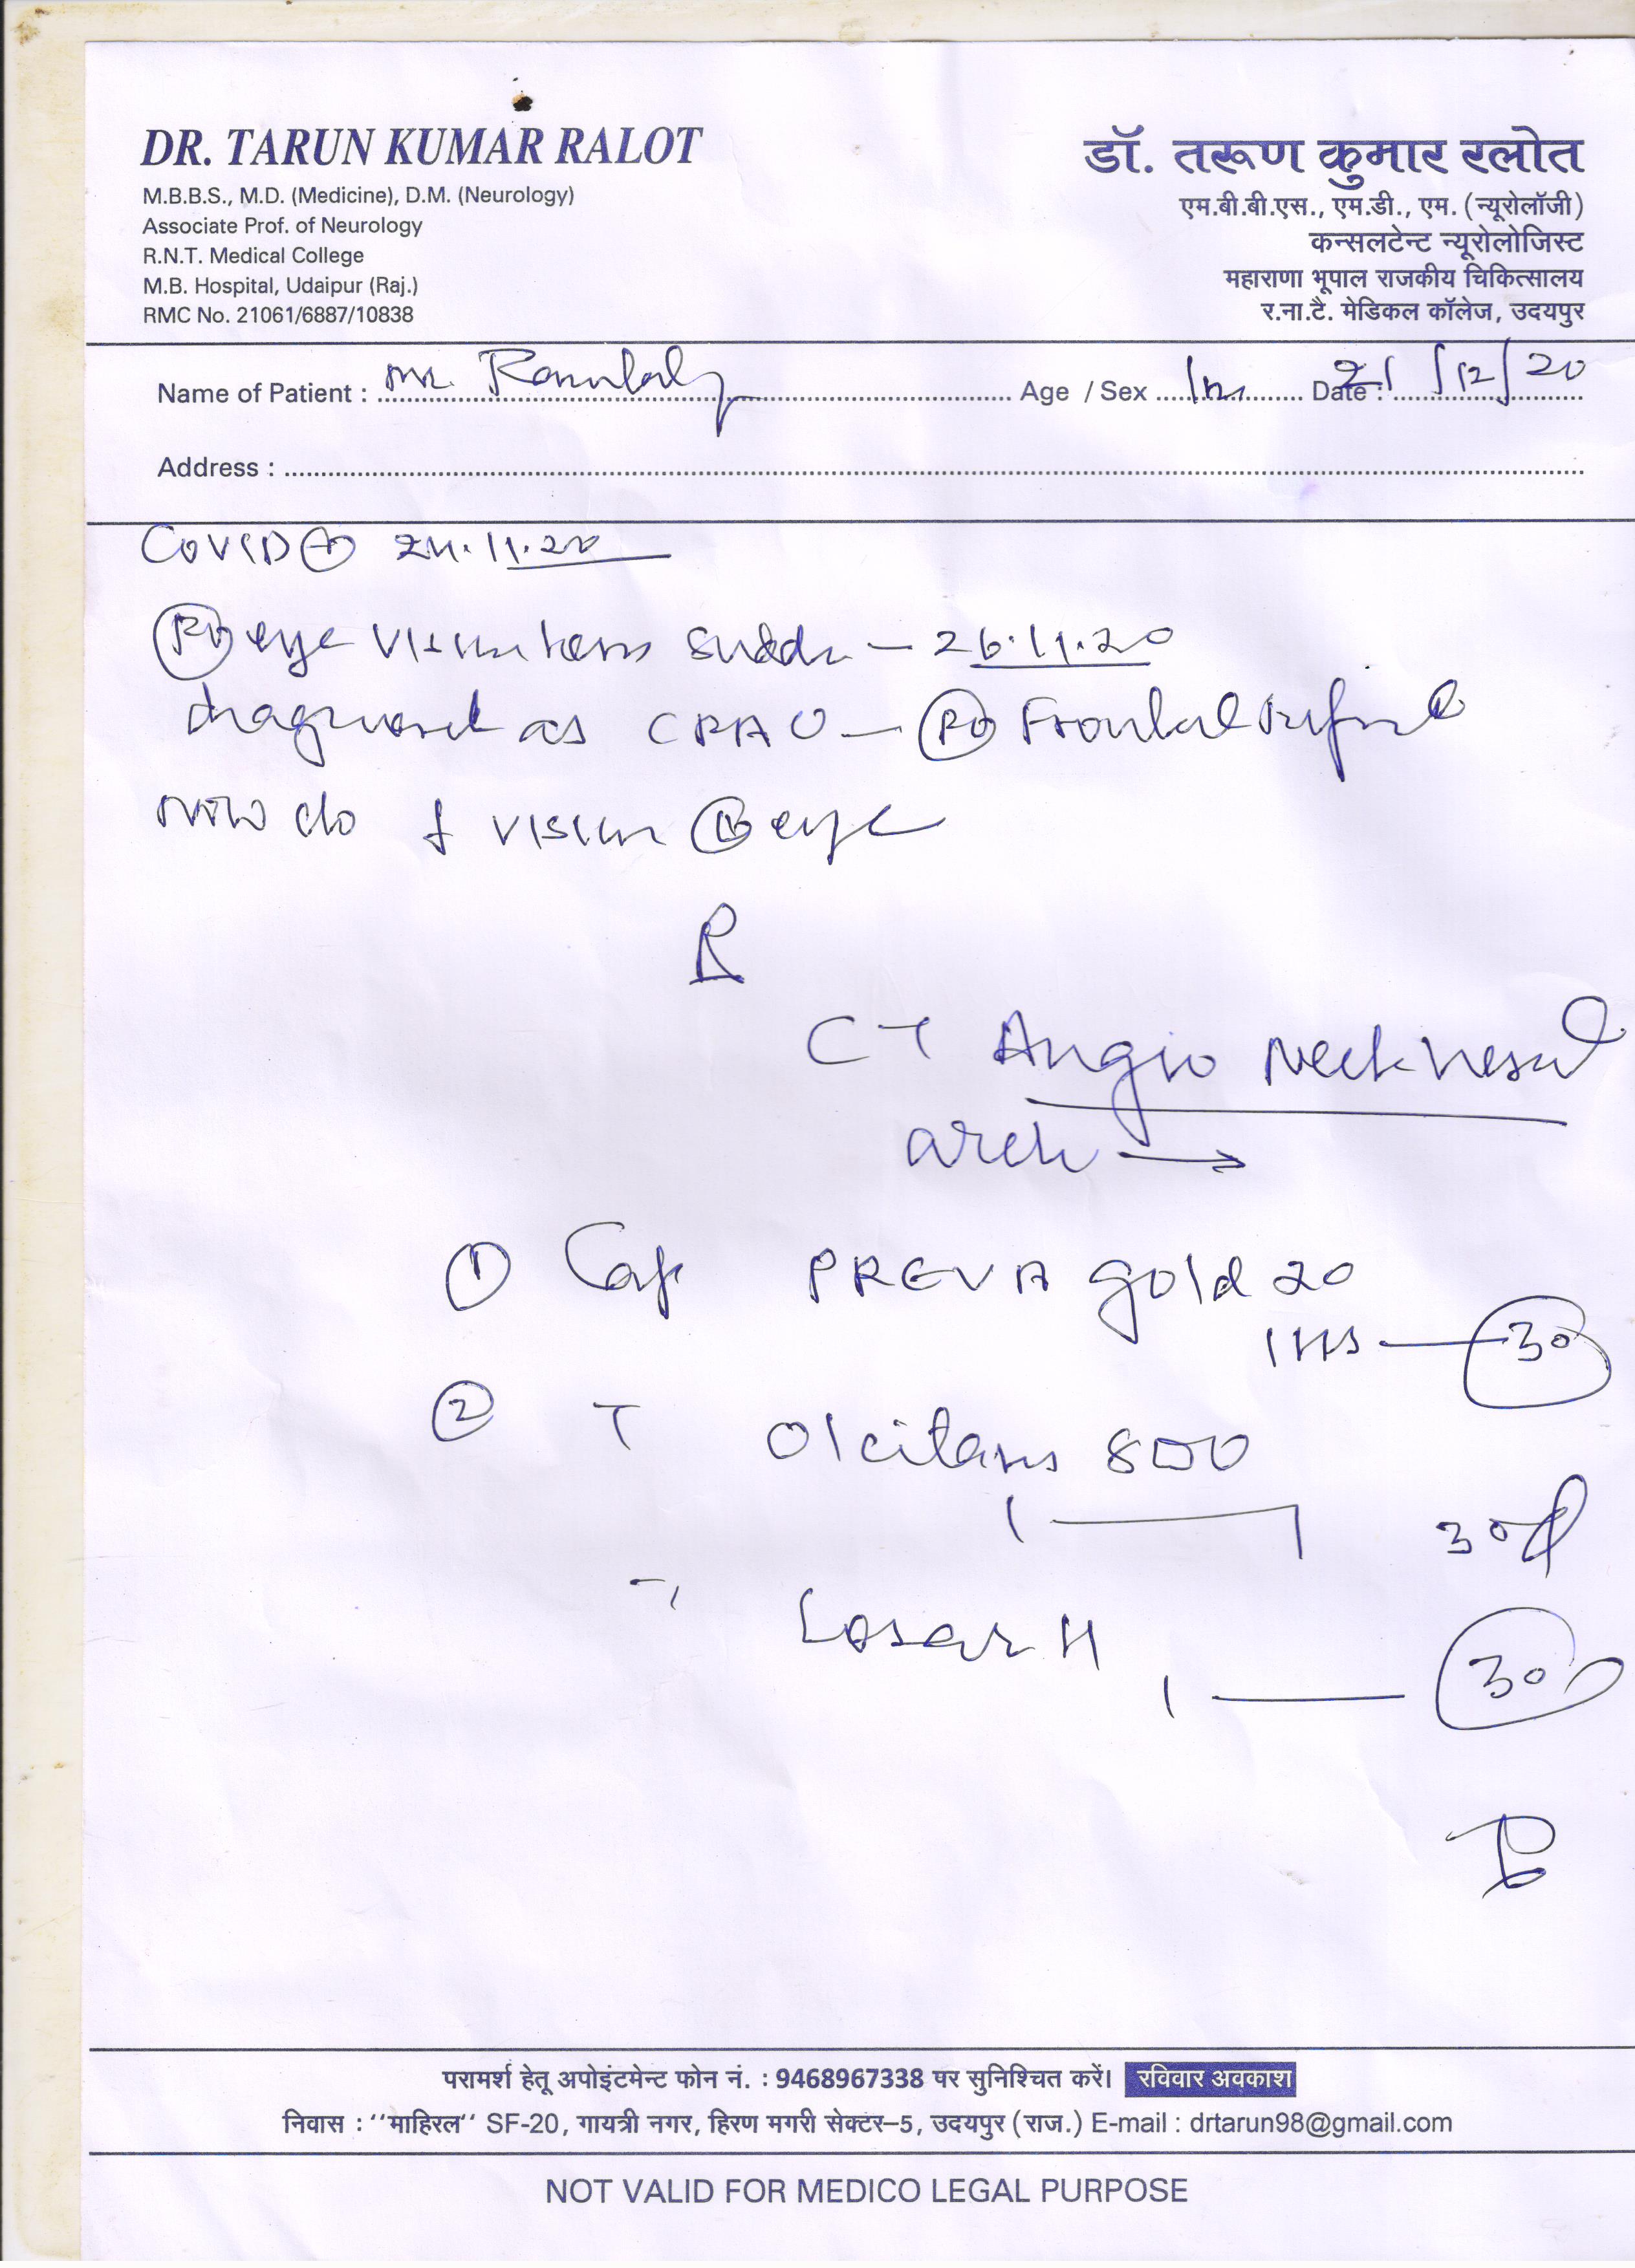 DR. TARUN KUMAR RALOT
M.B.B.S., M.D. (Medicine), D.M. (Neurology)
Associate Prof. of Neurology
R.N.T. Medical College
M.B. Hospital, Udaipur (Raj.)
RMC No. 21061/6887/10838
डॉ. तरूण कुमार रलोत
एम.बी.बी.एस., एम.डी., एम. (न्यूरोलॉजी)
कन्सलटेन्ट न्यूरोलोजिस्ट
महाराणा भूपाल राजकीय चिकित्सालय
र.ना.टै. मेडिकल कॉलेज, उदयपुर
Name of Patient : Mr. Age / Sex /m Date : 21/12/20
Address :
COVID + 24.11.20
Rt eye vision loss sudden - 26.11.20
diagnosed as CRAO - Rt Frontal infarct
Now c/o ↓ vision eye
R
CT Angio Neck Vessel
arch →
① Cap PREVA gold 20
1 HS — 30
② T 800
1 — 1 30
Losar H
1 — 30
परामर्श हेतू अपोइंटमेन्ट फोन नं. : 9468967338 पर सुनिश्चित करें। रविवार अवकाश
निवास : ‘‘माहिरल‘‘ SF-20, गायत्री नगर, हिरण मगरी सेक्टर–5, उदयपुर (राज.) E-mail : drtarun98@gmail.com
NOT VALID FOR MEDICO LEGAL PURPOSE